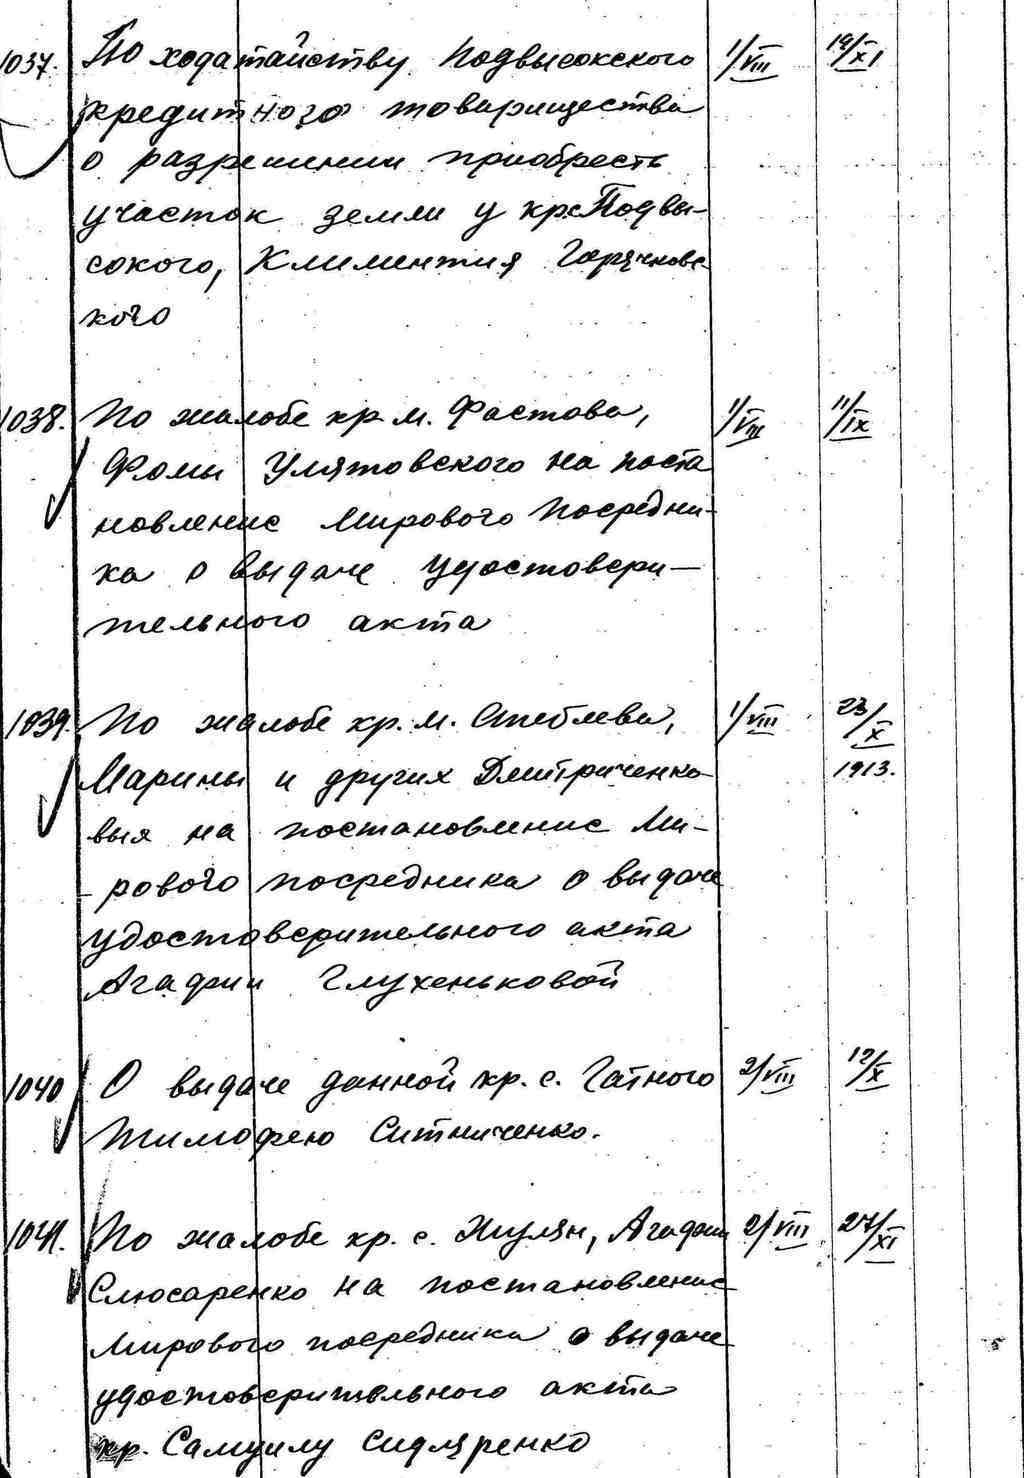 1037. По ходатайству Подвысокского 1/VIII 19/XI
кредитного товарищества
о разрешении приобресть
участок земли у кр. Подвы-
сокого, Климентия Горячковс-
кого
1038. По жалобе кр м. Фастова, 1/VIII 11/IX
Фомы Улятовского на поста
новление Мирового Посредни-
ка о выдаче удостовери-
тельного акта
1039. По жалобе кр. м. Стеблева, 1/VIII 23/X
Марины и других Дмитриченко- 1913.
вых на постановление Ми-
-рового посредника о выдаче
удостоверительного акта
Агафии Глухеньковой
1040 О выдаче данной кр. с. Гатного 2/VIII 12/X
Тимофею Ситниченко.
1041. По жалобе кр. с. Жулян, Агафии 2/VIII 27/XI
Слюсаренко на постановление
Мирового посредника о выдаче
удостоверительного акта
кр. Самуилу Сидяренко